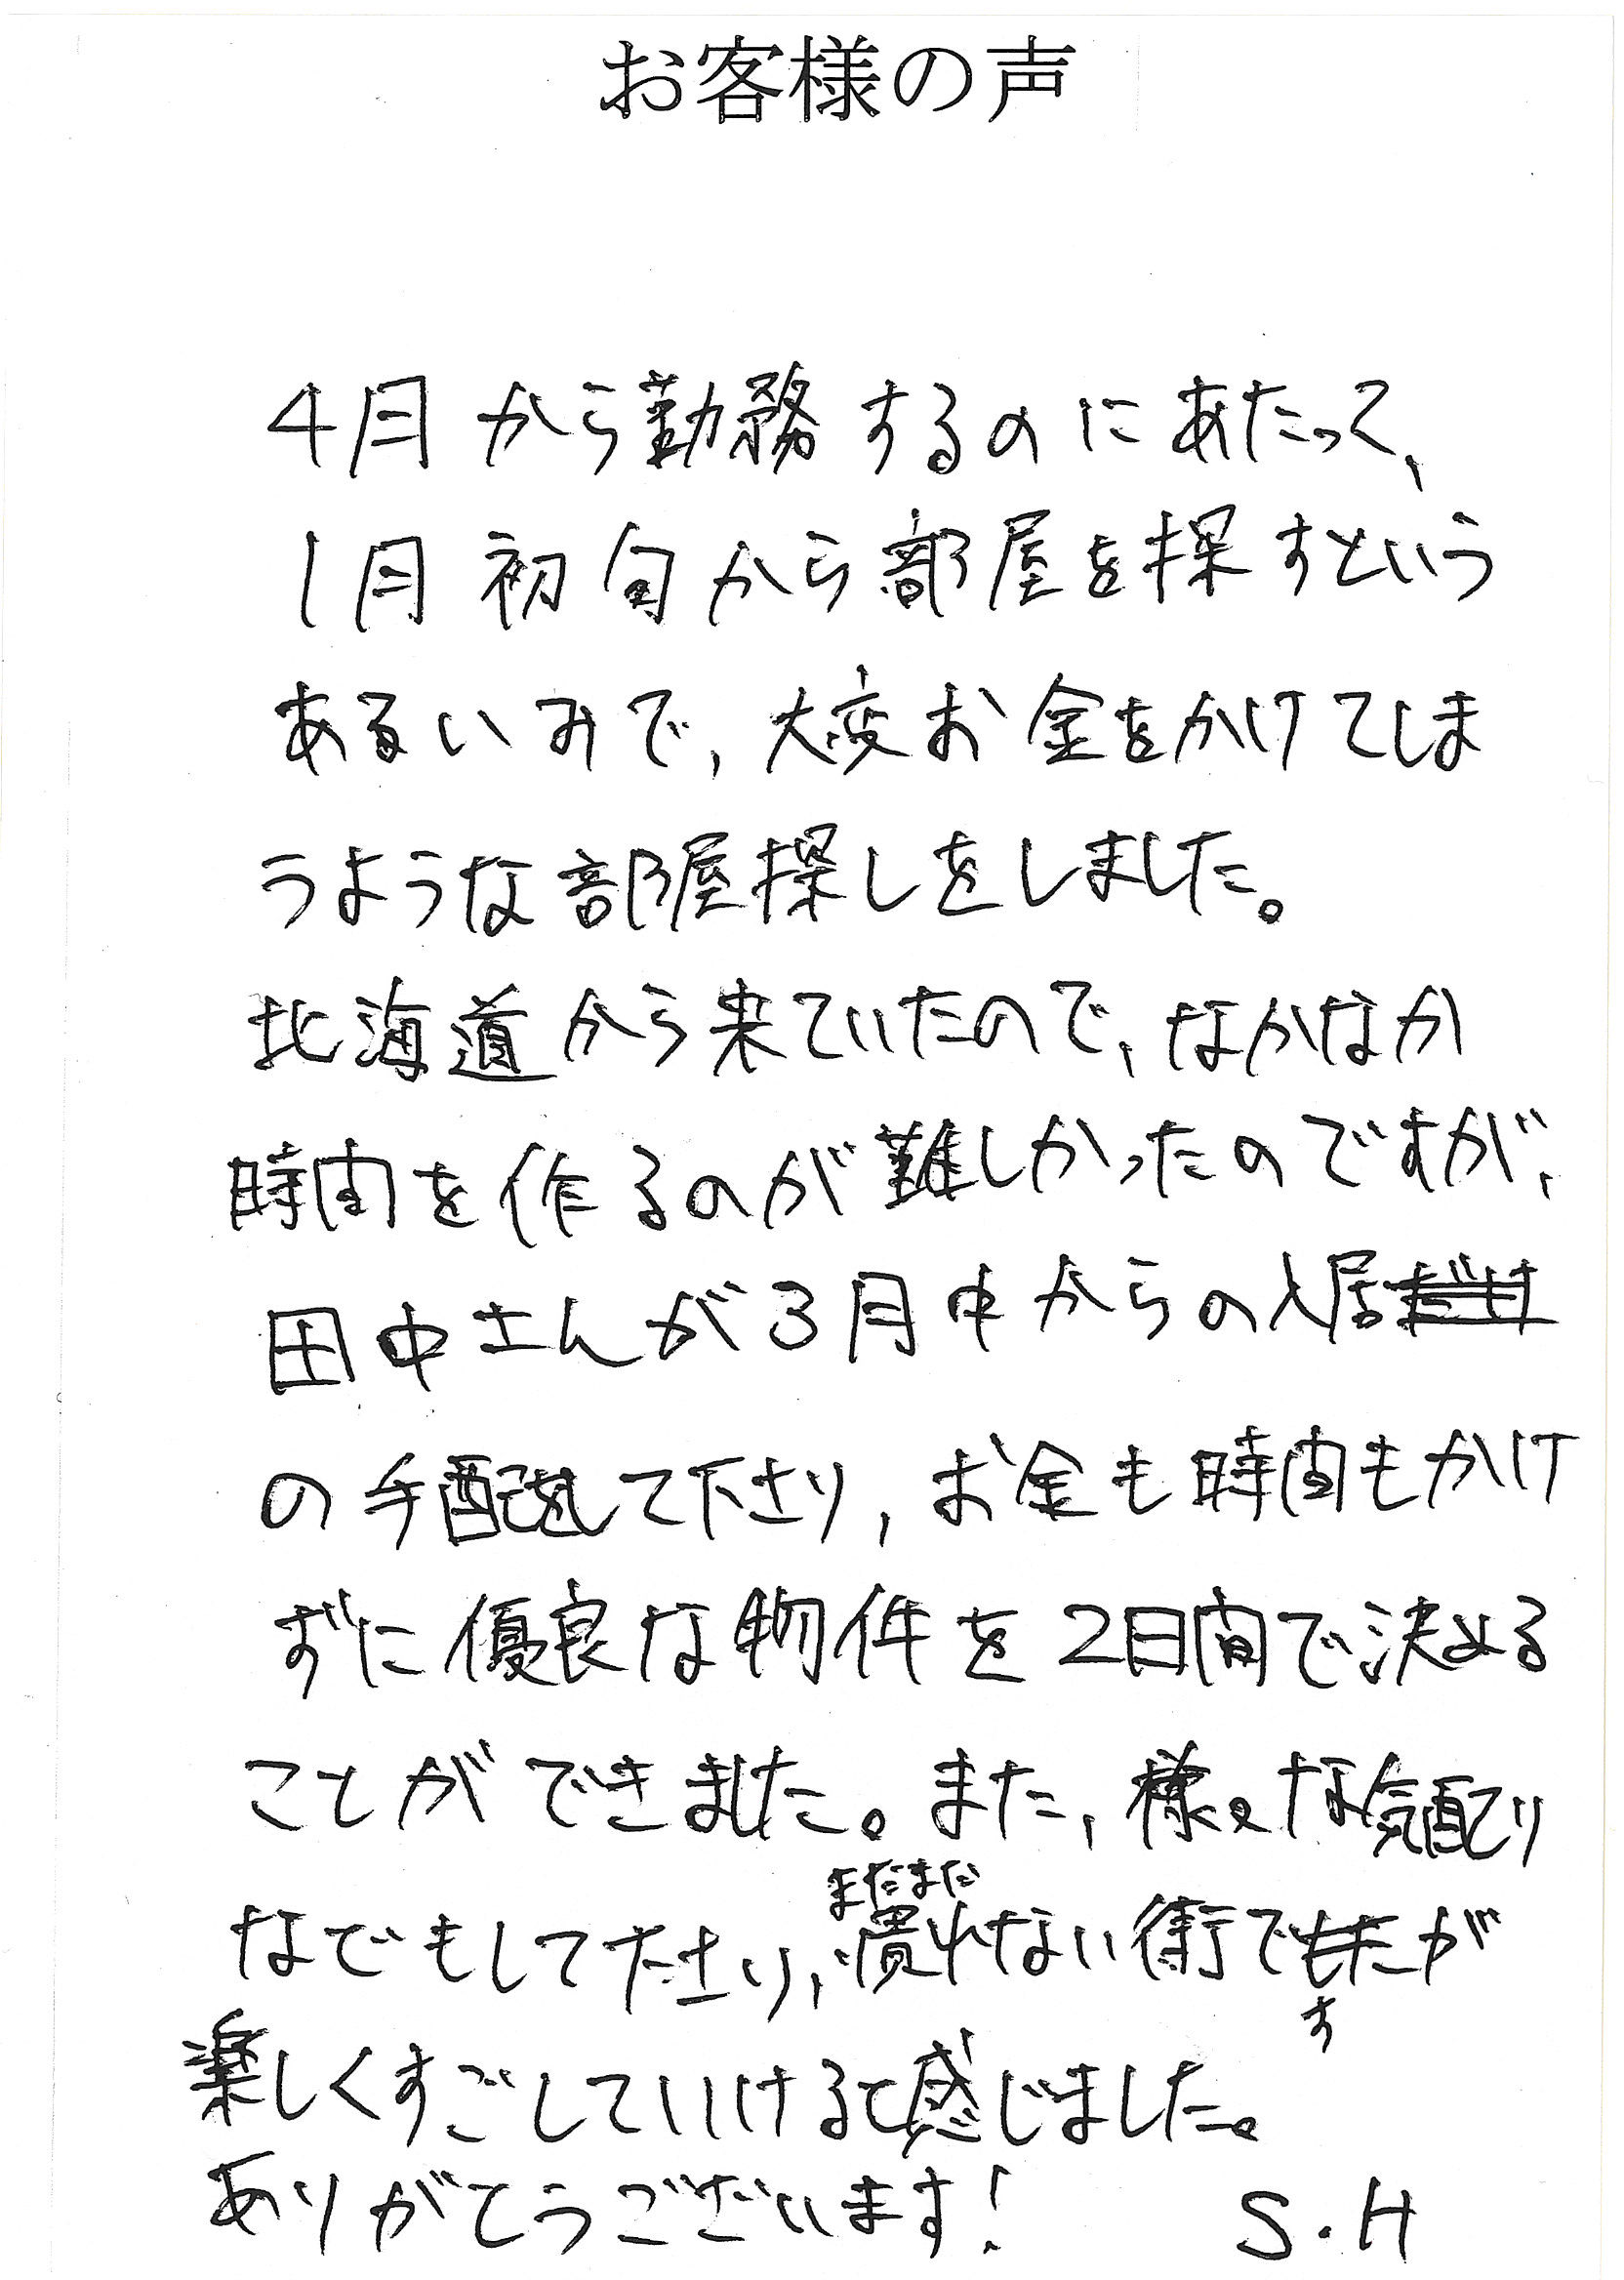 お客様の声
4月から勤務するのにあたって、
1月初旬から部屋を探すという
あるいみで、大変お金をかけてしま
うような部屋探しをしました。
北海道から来ていたので、なかなか
時間を作るのが難しかったのですが、
田中さんが3月中からの入居
の手配をして下さり、お金も時間もかけ
ずに優良な物件を2日間で決める
ことができました。また、様々な気配り
まだまだ
なでもして下さり、慣れない街でが
す
楽しくすごしていけると感じました。
ありがとうございます!
S.H